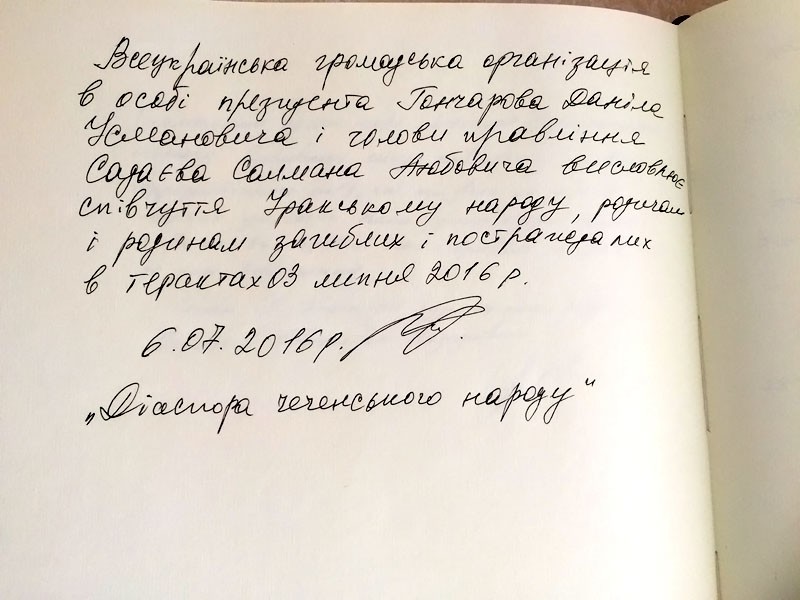 Всеукраїнська громадська організація
в особі президента Гончарова Даніла
Усмановича і голови правління
Садаєва Салмана Аюбовича висловлює
співчуття Іракському народу, родичам
і родинам загиблих і постраждалих
в терактах 03 липня 2016 р.
6.07.2016 р.
„Діаспора чеченського народу"